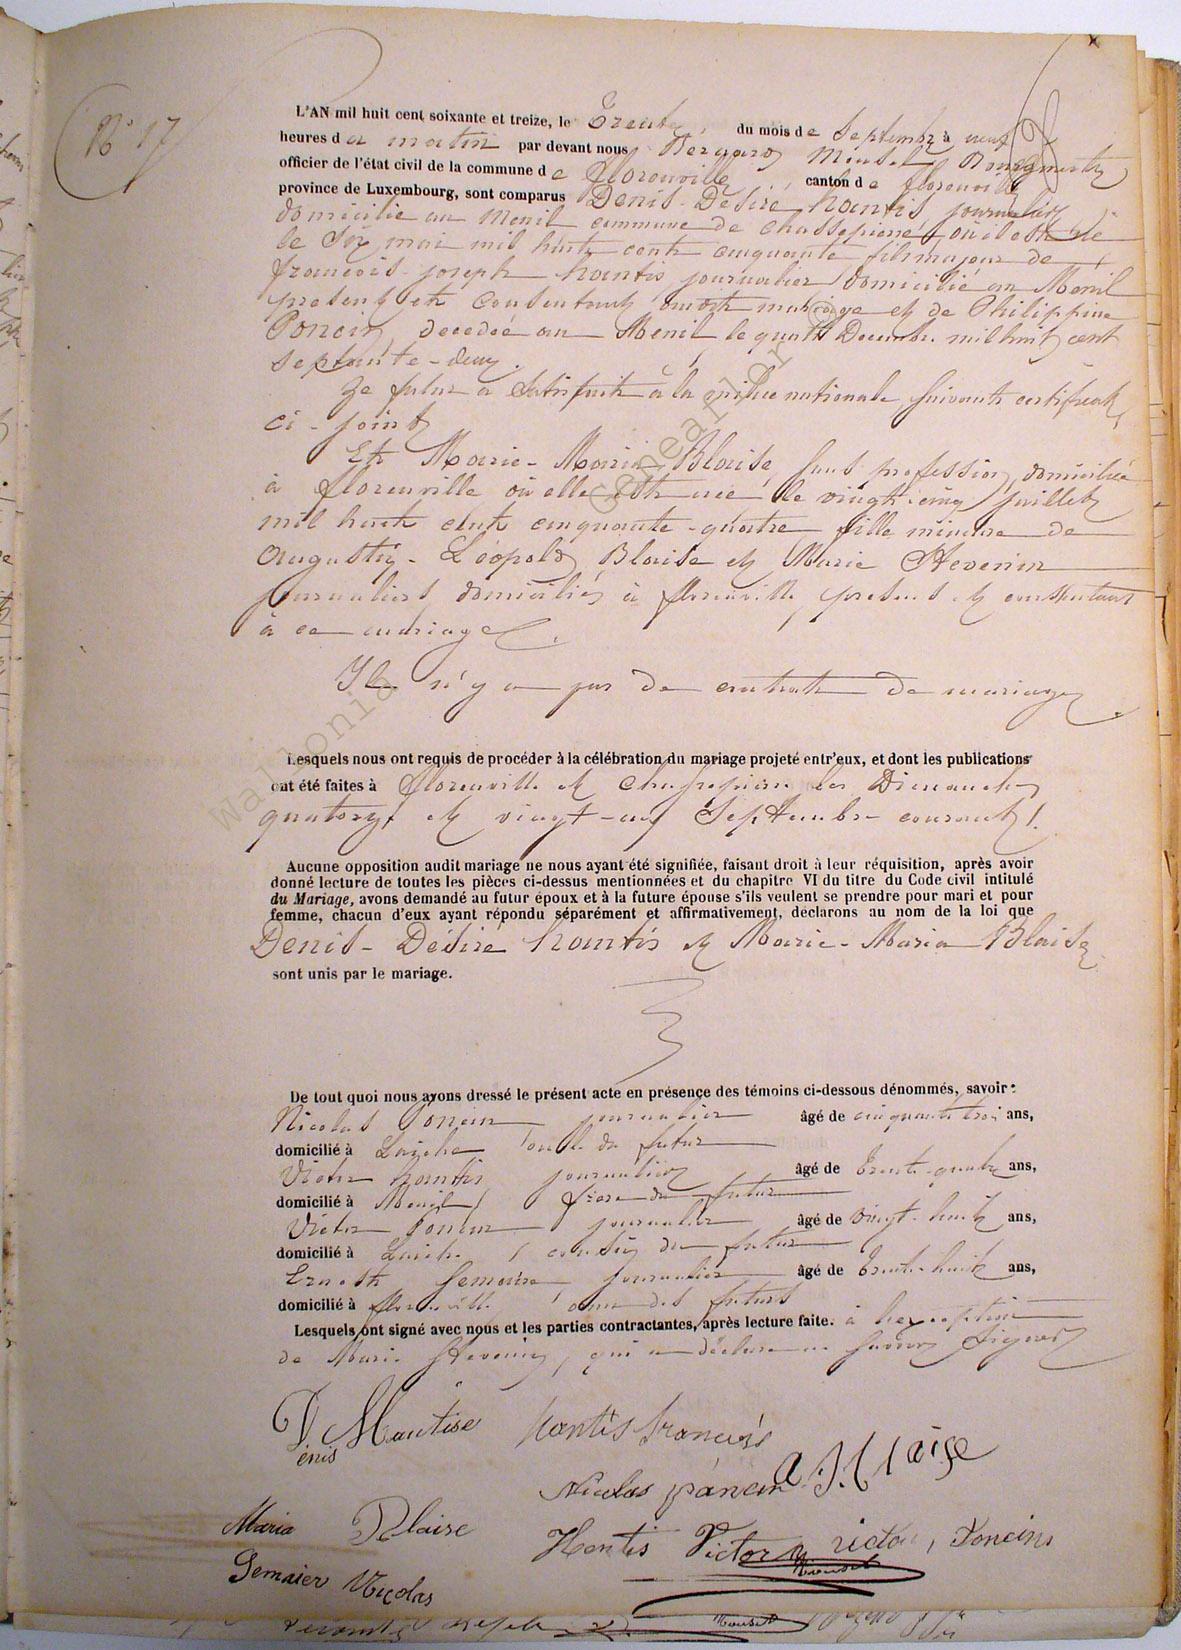 N° 17
L'AN mil huit cent soixante et treize, le Trente, du mois de Septembre à neuf
heures du matin par devant nous Bernard Mouset Bourgmestre
officier de l'état civil de la commune de florenville canton de florenville
province de Luxembourg, sont comparus Denis-Désiré hantis journalier
domicilié au Ménil commune de chassepierre, où il est né
le Six mai mil huit cent cinquante fils majeur de
francois-joseph hantis journalier domicilié au Ménil
présent et consentant au mariage et de Philippine
Poncin, décédée au Menil le quatre Décembre mil huit cent
septante-deux.
Le futur a Satisfait à la milice nationale suivant certificat
ci-joint
Et Marie-Maria Blaise sans profession, domiciliée
à florenville où elle est née le vingt cinq juillet
mil huit cent cinquante-quatre fille mineure de
augustin-Léopold Blaise et Marie Hevenin
journaliers domiciliés à florenville présents et consentant
à ce mariage.
Il n'y a pas de contrat de mariage
Lesquels nous ont requis de procéder à la célébration du mariage projeté entr'eux, et dont les publications
ont été faites à florenville et chassepierre les Dimanches
quatorze et vingt-un Septembre courant.
Aucune opposition audit mariage ne nous ayant été signifiée, faisant droit à leur réquisition, après avoir
donné lecture de toutes les pièces ci-dessus mentionnées et du chapitre VI du titre du Code civil intitulé
du Mariage, avons demandé au futur époux et à la future épouse s'ils veulent se prendre pour mari et pour
femme, chacun d'eux ayant répondu séparément et affirmativement, déclarons au nom de la loi que
Denis-Désiré hantis et Marie-Maria Blaise
sont unis par le mariage.
De tout quoi nous avons dressé le présent acte en présence des témoins ci-dessous dénommés, savoir:
Nicolas Poncin journalier âgé de cinquante trois ans,
domicilié à Laiche oncle du futur
Victor hantis journalier âgé de trente-quatre ans,
domicilié à Menil frère du futur
Victor Poncin journalier âgé de vingt-huit ans,
domicilié à Laiche cousin du futur
Ernest Gemaire journalier âgé de trente-huit ans,
domicilié à florenville ami des futurs
Lesquels ont signé avec nous et les parties contractantes, après lecture faite. à l'exception
de Marie Hevenin, qui a déclaré ne savoir Signer
Denis Hautise hantis francois
Nicolas poncin a. Blaise
Maria Blaise Hantis Victor victor Poncin
Gemaier Nicolas Mouset
Mouset
Wallonia Genealor ©